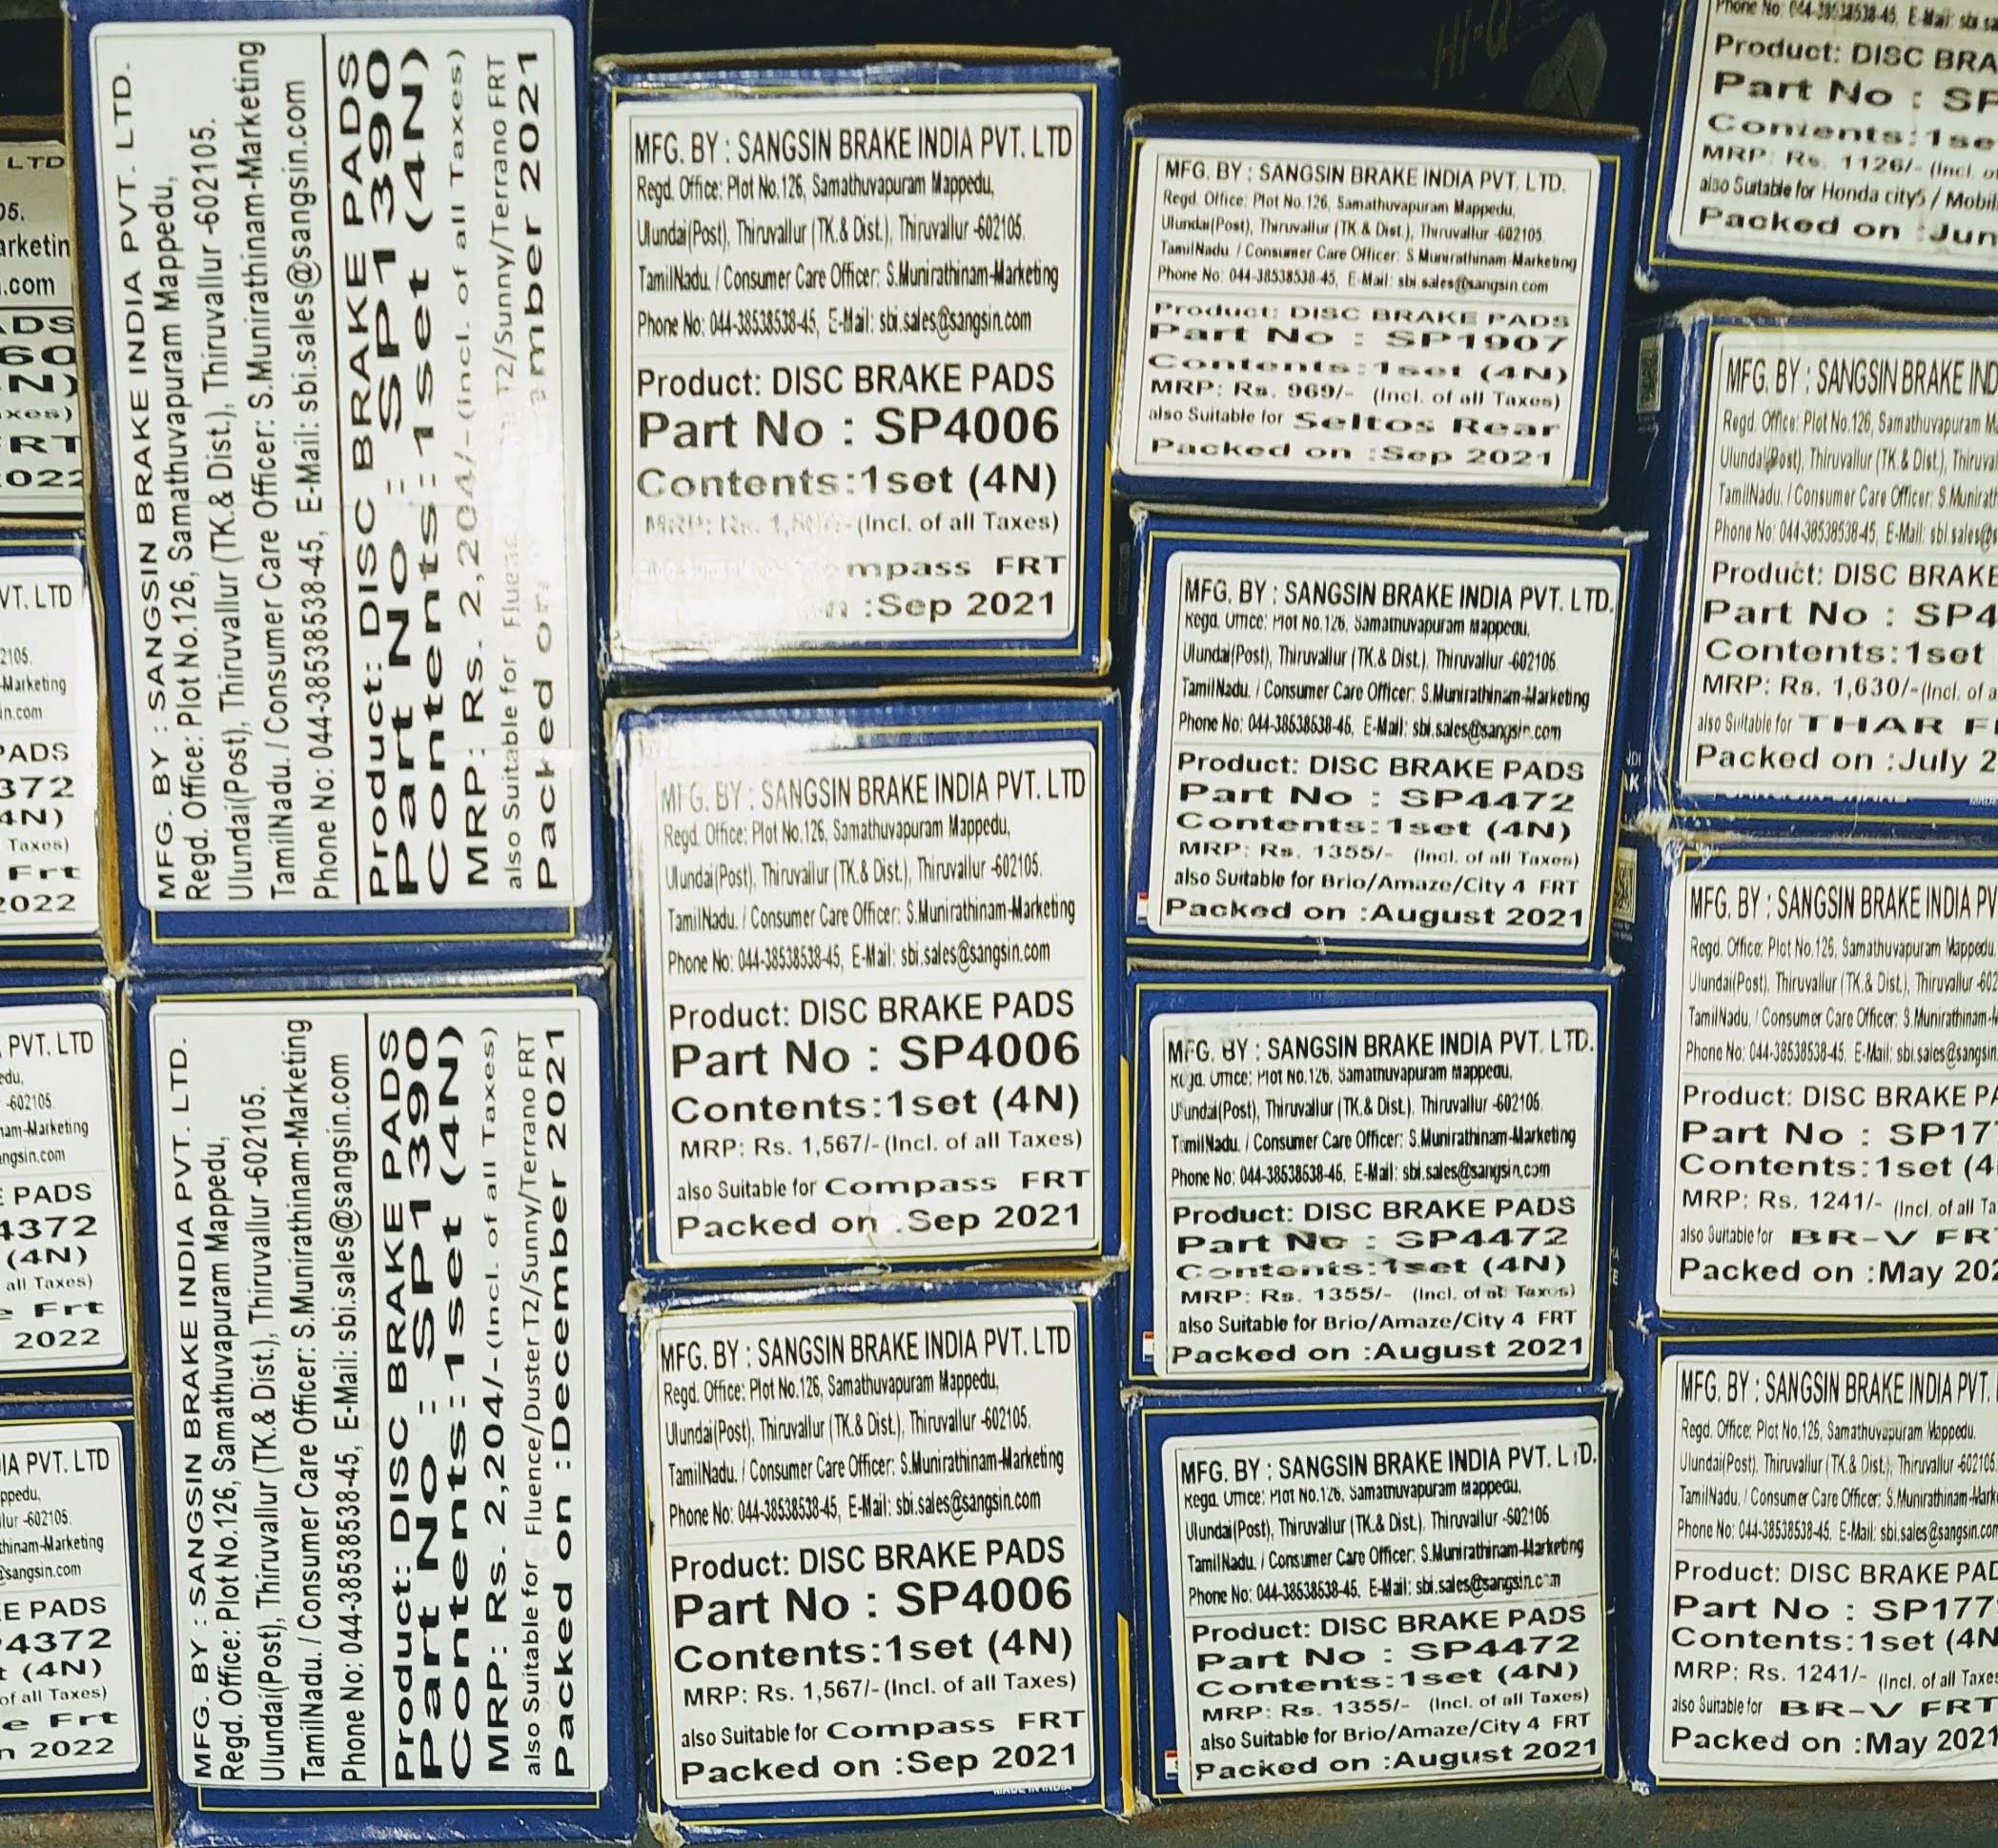 LTD
05.
arketin
.com
ADS
60
N)
xes)
FRT
2022
VT. LTD
2105.
-Marketing
in.com
PADS
372
4N)
Taxes)
Frt
2022
PVT. LTD
edu,
-602105.
nam-Marketing
ngsin.com
E PADS
4372
(4N)
all Taxes)
e Frt
2022
IA PVT. LTD
ppedu,
llur -602105.
thinam-Marketing
@sangsin.com
E PADS
4372
t (4N)
of all Taxes)
e Frt
n 2022
MFG. BY : SANGSIN BRAKE INDIA PVT. LTD.
Regd. Office: Plot No.126, Samathuvapuram Mappedu,
Ulundai(Post), Thiruvallur (TK.& Dist.), Thiruvallur -602105.
TamilNadu. / Consumer Care Officer: S.Munirathinam-Marketing
Phone No: 044-38538538-45, E-Mail: sbi.sales@sangsin.com
Product: DISC BRAKE PADS
Part No : SP1390
Contents:1set (4N)
MRP: Rs. 2,204/-(Incl. of all Taxes)
also Suitable for Fluen T2/Sunny/Terrano FRT
Packed on ember 2021
MFG. BY : SANGSIN BRAKE INDIA PVT. LTD.
Regd. Office: Plot No.126, Samathuvapuram Mappedu,
Ulundai(Post), Thiruvallur (TK.& Dist.), Thiruvallur -602105.
TamilNadu. / Consumer Care Officer: S.Munirathinam-Marketing
Phone No: 044-38538538-45, E-Mail: sbi.sales@sangsin.com
Product: DISC BRAKE PADS
Part No : SP1390
Contents:1set (4N)
MRP: Rs. 2,204/-(Incl. of all Taxes)
also Suitable for Fluence/Duster T2/Sunny/Terrano FRT
Packed on :December 2021
MFG. BY : SANGSIN BRAKE INDIA PVT. LTD
Regd. Office: Plot No.126, Samathuvapuram Mappedu,
Ulundai(Post), Thiruvallur (TK.& Dist.), Thiruvallur -602105.
TamilNadu. / Consumer Care Officer: S.Munirathinam-Marketing
Phone No: 044-38538538-45, E-Mail: sbi.sales@sangsin.com
Product: DISC BRAKE PADS
Part No : SP4006
Contents:1set (4N)
MRP: Rs. (Incl. of all Taxes)
mpass FRT
n :Sep 2021
MFG. BY : SANGSIN BRAKE INDIA PVT. LTD
Regd. Office: Plot No.126, Samathuvapuram Mappedu,
Ulundai(Post), Thiruvallur (TK.& Dist.), Thiruvallur -602105.
TamilNadu. / Consumer Care Officer: S.Munirathinam-Marketing
Phone No: 044-38538538-45, E-Mail: sbi.sales@sangsin.com
Product: DISC BRAKE PADS
Part No : SP4006
Contents:1set (4N)
MRP: Rs. 1,567/-(Incl. of all Taxes)
also Suitable for Compass FRT
Packed on :Sep 2021
MFG. BY : SANGSIN BRAKE INDIA PVT. LTD
Regd. Office: Plot No.126, Samathuvapuram Mappedu,
Ulundai(Post), Thiruvallur (TK.& Dist.), Thiruvallur -602105.
TamilNadu. / Consumer Care Officer: S.Munirathinam-Marketing
Phone No: 044-38538538-45, E-Mail: sbi.sales@sangsin.com
Product: DISC BRAKE PADS
Part No : SP4006
Contents:1set (4N)
MRP: Rs. 1,567/-(Incl. of all Taxes)
also Suitable for Compass FRT
Packed on :Sep 2021
MADE IN INDIA
Hi-Q
MFG. BY : SANGSIN BRAKE INDIA PVT. LTD.
Regd. Office: Plot No.126, Samathuvapuram Mappedu,
Ulundai(Post), Thiruvallur (TK.& Dist.), Thiruvallur -602105.
TamilNadu. / Consumer Care Officer: S.Munirathinam-Marketing
Phone No: 044-38538538-45, E-Mail: sbi.sales@sangsin.com
Product: DISC BRAKE PADS
Part No : SP1907
Contents:1set (4N)
MRP: Rs. 969/- (Incl. of all Taxes)
also Suitable for Seltos Rear
Packed on :Sep 2021
MFG. BY : SANGSIN BRAKE INDIA PVT. LTD.
Regd. Office: Plot No.126, Samathuvapuram Mappedu,
Ulundai(Post), Thiruvallur (TK.& Dist.), Thiruvallur -602105
TamilNadu. / Consumer Care Officer: S.Munirathinam-Marketing
Phone No: 044-38538538-45, E-Mail: sbi.sales@sangsin.com
Product: DISC BRAKE PADS
Part No : SP4472
Contents:1set (4N)
MRP: Rs. 1355/- (Incl. of all Taxes)
also Suitable for Brio/Amaze/City 4 FRT
Packed on :August 2021
MFG. BY : SANGSIN BRAKE INDIA PVT. LTD.
Regd. Office: Plot No.126, Samathuvapuram Mappedu,
Ulundai(Post), Thiruvallur (TK.& Dist.), Thiruvallur -602105.
TamilNadu. / Consumer Care Officer: S.Munirathinam-Marketing
Phone No: 044-38538538-45, E-Mail: sbi.sales@sangsin.com
Product: DISC BRAKE PADS
Part No : SP4472
Contents:1set (4N)
MRP: Rs. 1355/- (Incl. of all Taxes)
also Suitable for Brio/Amaze/City 4 FRT
Packed on :August 2021
MFG. BY : SANGSIN BRAKE INDIA PVT. LTD.
Regd. Office: Plot No.126, Samathuvapuram Mappedu,
Ulundai(Post), Thiruvallur (TK.& Dist.), Thiruvallur -602105
TamilNadu. / Consumer Care Officer: S.Munirathinam-Marketing
Phone No: 044-38538538-45, E-Mail: sbi.sales@sangsin.com
Product: DISC BRAKE PADS
Part No : SP4472
Contents:1set (4N)
MRP: Rs. 1355/- (Incl. of all Taxes)
also Suitable for Brio/Amaze/City 4 FRT
Packed on :August 2021
Phone No: 044-38538538-45, E-Mail: sbi.sa
Product: DISC BRA
Part No : SP
Contents:1se
MRP: Rs. 1126/- (Incl. of
also Suitable for Honda city5 / Mobili
Packed on :Jun
MFG. BY : SANGSIN BRAKE IND
Regd. Office: Plot No.126, Samathuvapuram M
Ulundai(Post), Thiruvallur (TK.& Dist.), Thiruval
TamilNadu. / Consumer Care Officer: S.Munirath
Phone No: 044-38538538-45, E-Mail: sbi.sales@s
Product: DISC BRAKE
Part No : SP4
Contents:1set
MRP: Rs. 1,630/-(Incl. of a
also Suitable for THAR F
Packed on :July 2
MFG. BY : SANGSIN BRAKE INDIA PV
Regd. Office: Plot No.126, Samathuvapuram Mappedu,
Ulundai(Post), Thiruvallur (TK.& Dist.), Thiruvallur -602
TamilNadu. / Consumer Care Officer: S.Munirathinam-M
Phone No: 044-38538538-45, E-Mail: sbi.sales@sangsin.
Product: DISC BRAKE PA
Part No : SP177
Contents:1set (4
MRP: Rs. 1241/- (Incl. of all Ta
also Suitable for BR-V FRT
Packed on :May 202
MFG. BY : SANGSIN BRAKE INDIA PVT.
Regd. Office: Plot No.126, Samathuvapuram Mappedu,
Ulundai(Post), Thiruvallur (TK.& Dist.), Thiruvallur -602105
TamilNadu. / Consumer Care Officer: S.Munirathinam-Mark
Phone No: 044-38538538-45, E-Mail: sbi.sales@sangsin.com
Product: DISC BRAKE PAD
Part No : SP177
Contents:1set (4N
MRP: Rs. 1241/- (Incl. of all Taxes
also Suitable for BR-V FRT
Packed on :May 2021